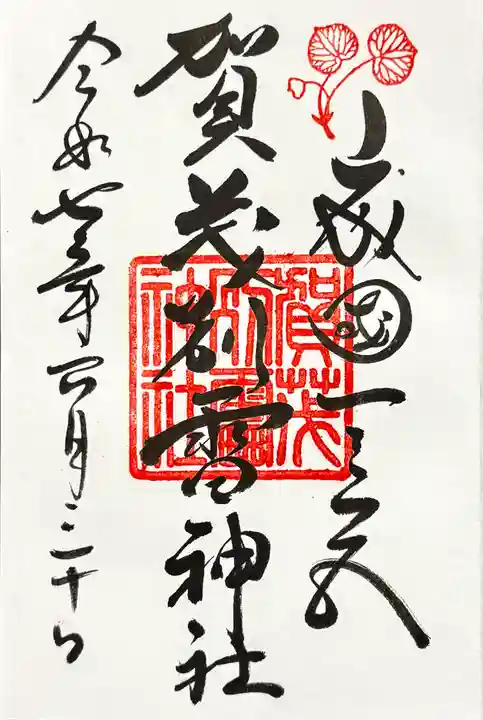 山城國一之宮
賀茂別雷神社
令和七年四月三十日
賀茂
別雷
神社